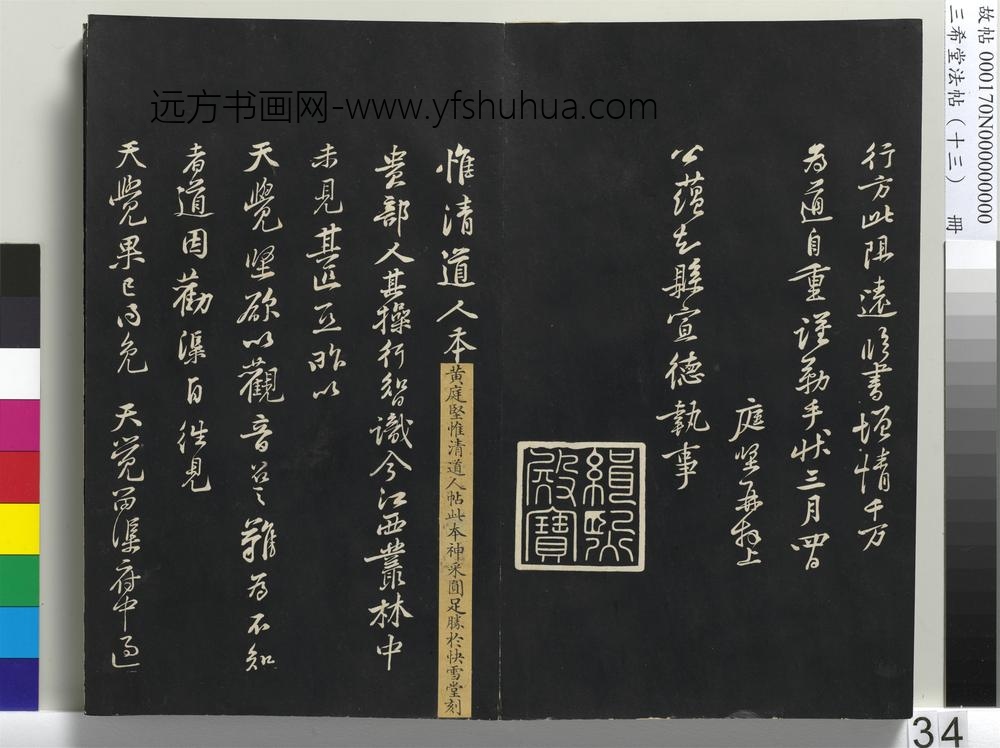 故帖 000170N000000000
三希堂法帖（十三） 冊
远方书画网-www.yfshuhua.com
行方此阻遠臨書增情千万
為道自重謹勒手状三月四日
庭堅再拜上
公蘊知縣宣德執事
緝熙
殿寶
惟清道人本
黃庭堅惟清道人帖此本神采圓足勝於快雪堂刻
貴部人其操行智識今江西叢林中
未見其匹亞昨以
天覺堅欲以觀音召之難為不知
者道因勸渠自往見
天覺果已得免 天覺留渠府中過
34